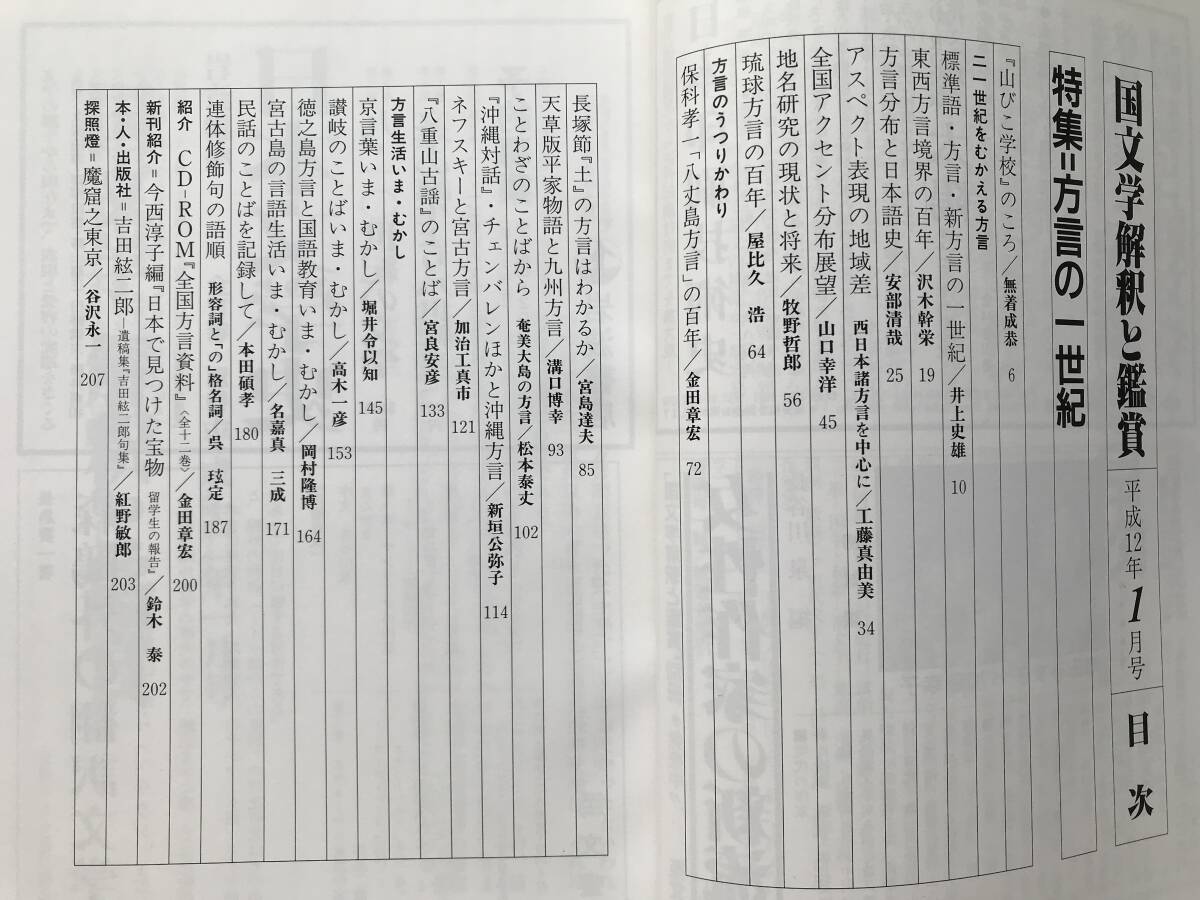 国文学解釈と鑑賞 平成12年1月号 目次
特集=方言の一世紀
『山びこ学校』のころ/無着成恭 6
二一世紀をむかえる方言
標準語・方言・新方言の一世紀/井上史雄 10
東西方言境界の百年/沢木幹栄 19
方言分布と日本語史/安部清哉 25
アスペクト表現の地域差 西日本諸方言を中心に/工藤真由美 34
全国アクセント分布展望/山口幸洋 45
地名研究の現状と将来/牧野哲郎 56
琉球方言の百年/屋比久 浩 64
方言のうつりかわり
保科孝一「八丈島方言」の百年/金田章宏 72
長塚節『土』の方言はわかるか/宮島達夫 85
天草版平家物語と九州方言/溝口博幸 93
ことわざのことばから 奄美大島の方言/松本泰丈 102
『沖縄対話』・チェンバレンほかと沖縄方言/新垣公弥子 114
ネフスキーと宮古方言/加治工真市 121
『八重山古謡』のことば/宮良安彦 133
方言生活いま・むかし
京言葉いま・むかし/堀井令以知 145
讃岐のことばいま・むかし/高木一彦 153
徳之島方言と国語教育いま・むかし/岡村隆博 164
宮古島の言語生活いま・むかし/名嘉真 三成 171
民話のことばを記録して/本田碩孝 180
連体修飾句の語順 形容詞と「の」格名詞/呉 玹定 187
紹介 CD-ROM『全国方言資料』〈全十二巻〉/金田章宏 200
新刊紹介=今西淳子編『日本で見つけた宝物 留学生の報告』/鈴木 泰 202
本・人・出版社=吉田絃二郎―遺稿集『吉田絃二郎句集』/紅野敏郎 203
探照燈=魔窟之東京/谷沢永一 207